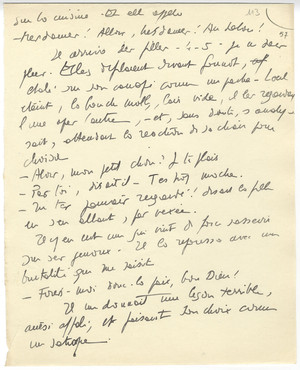 sur la cuisine. Et elle appela
– Mesdames! Allons, mesdames! Au salon!
Il arriva des filles – 4 – 5 – je ne sais
plus. Elles défilaient devant
sur son canapé comme un pacha – l'œil
éteint, la bouche molle, l'air vide, il les regardait
l'une après l'autre, – et, sans doute, s'analy-
sait, attendant la réaction de sa chair pour
choisir.
– Alors, mon petit chou? Je te plais
– Pas toi, disait-il – T'es trop moche.
– Tu t'es pas regardé! disait la fille
en s'en allant, pas vexée.
Il y en eut une qui vint de force s'asseoir
sur ses genoux. Il la repoussa avec une
brutalité qui me saisit
– Foutez-moi donc la paix, bon Dieu!
Il me donnait une leçon terrible,
aussi affalé, et faisant son choix comme
un satrape.
113
57